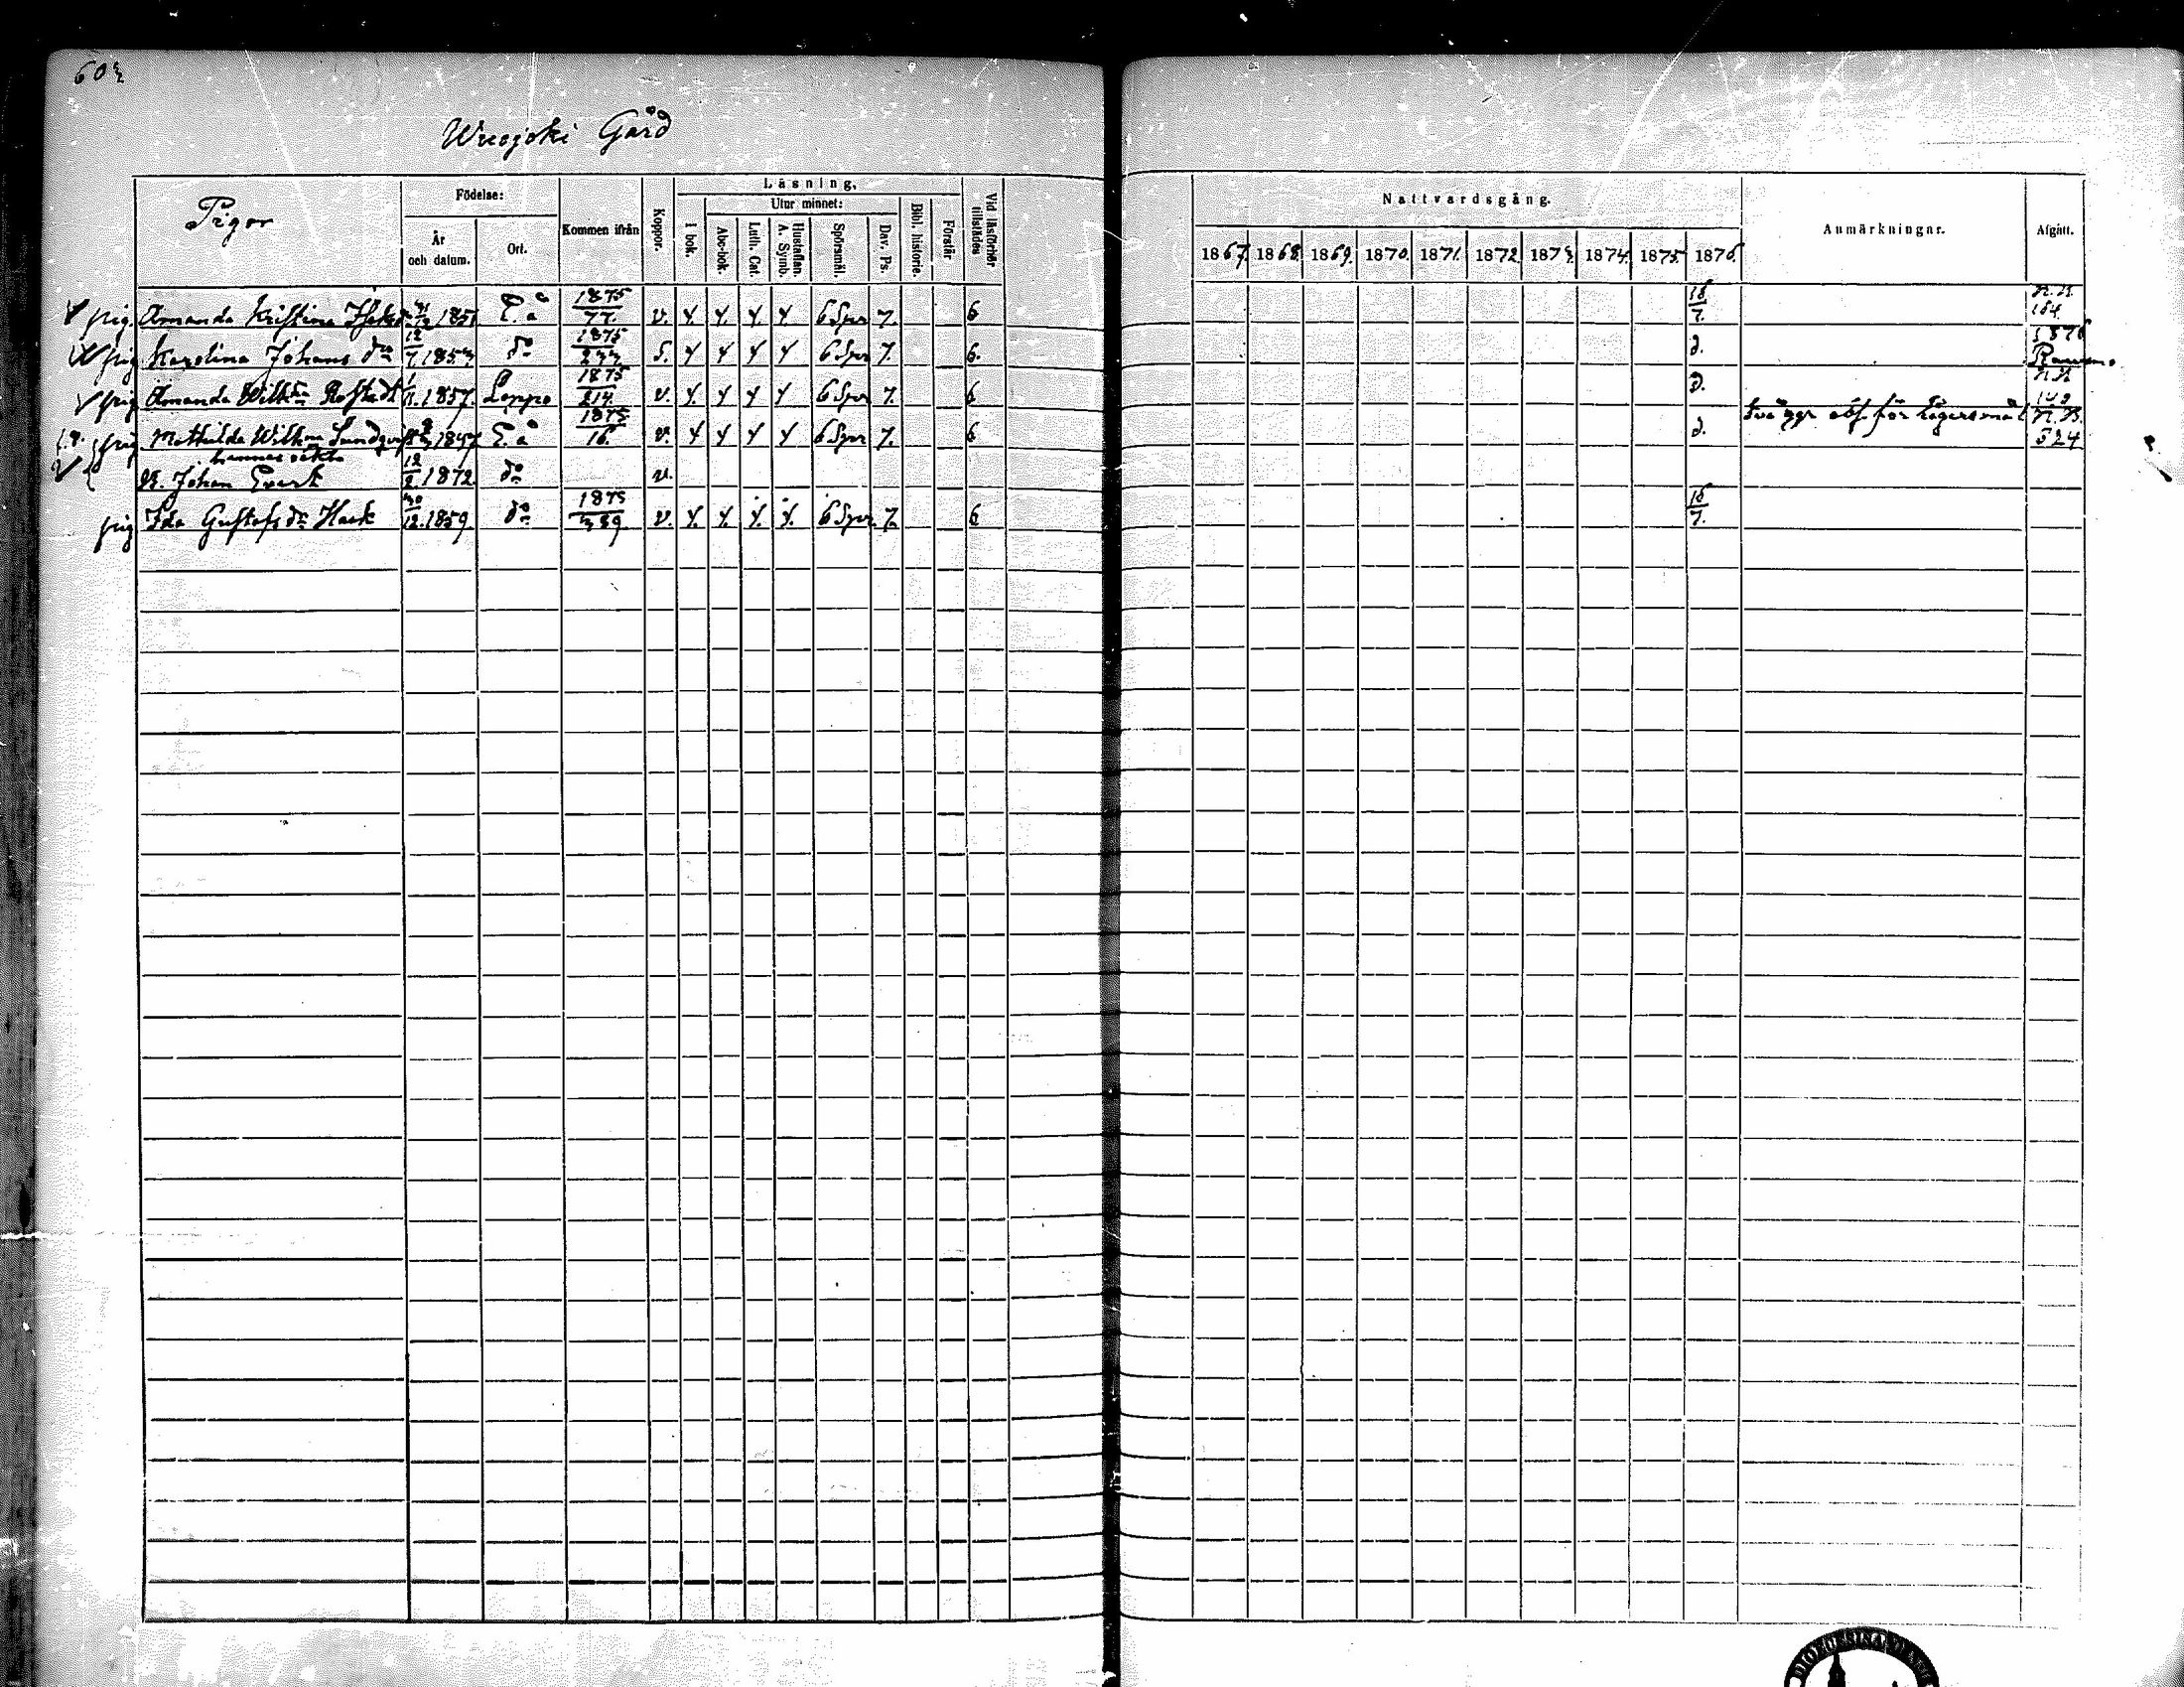 Wuojoki Gård
Pigor
Födelse:
År och datum.
Ort.
Kommen ifrån
Koppor.
Läsning.
I bok.
Utur minnet:
Abc-bok.
Luth. Cat.
Hustaflan. A. Symb.
Spörsmål.
Dav. Ps.
Bibl. historie.
Förstår
Vid läsförhör tillstädes
Nattvardsgång.
1867. 1868. 1869. 1870. 1871. 1872. 1873. 1874. 1875. 1876.
Anmärkningar.
Afgått.
pig. Amanda Kristina 1851 E.å 1875 77. v. 6 Spr 7. 6 18/7. 164
pig Karolina Johans dr 12/7 1853 do 1875 233 S. 6 Spr 7. 6. d. 1876 Raumo
pig Amanda Wilh:a 1857. Lappo 1875 214. v. 6 Spr 7. 6 d.
pig Mathilda Wilh:a Lundqvist 1847 E.å 1875 16. v. 6 Spr 7. 6 d. för lägersmål N.B. 524
hennes oäkta
Johan Evert 12/2 1872 do v.
pig Ida Gustafs dr Haak 30/12. 1859 do 1875 339 v. 6 Spr 7. 6 16/7.